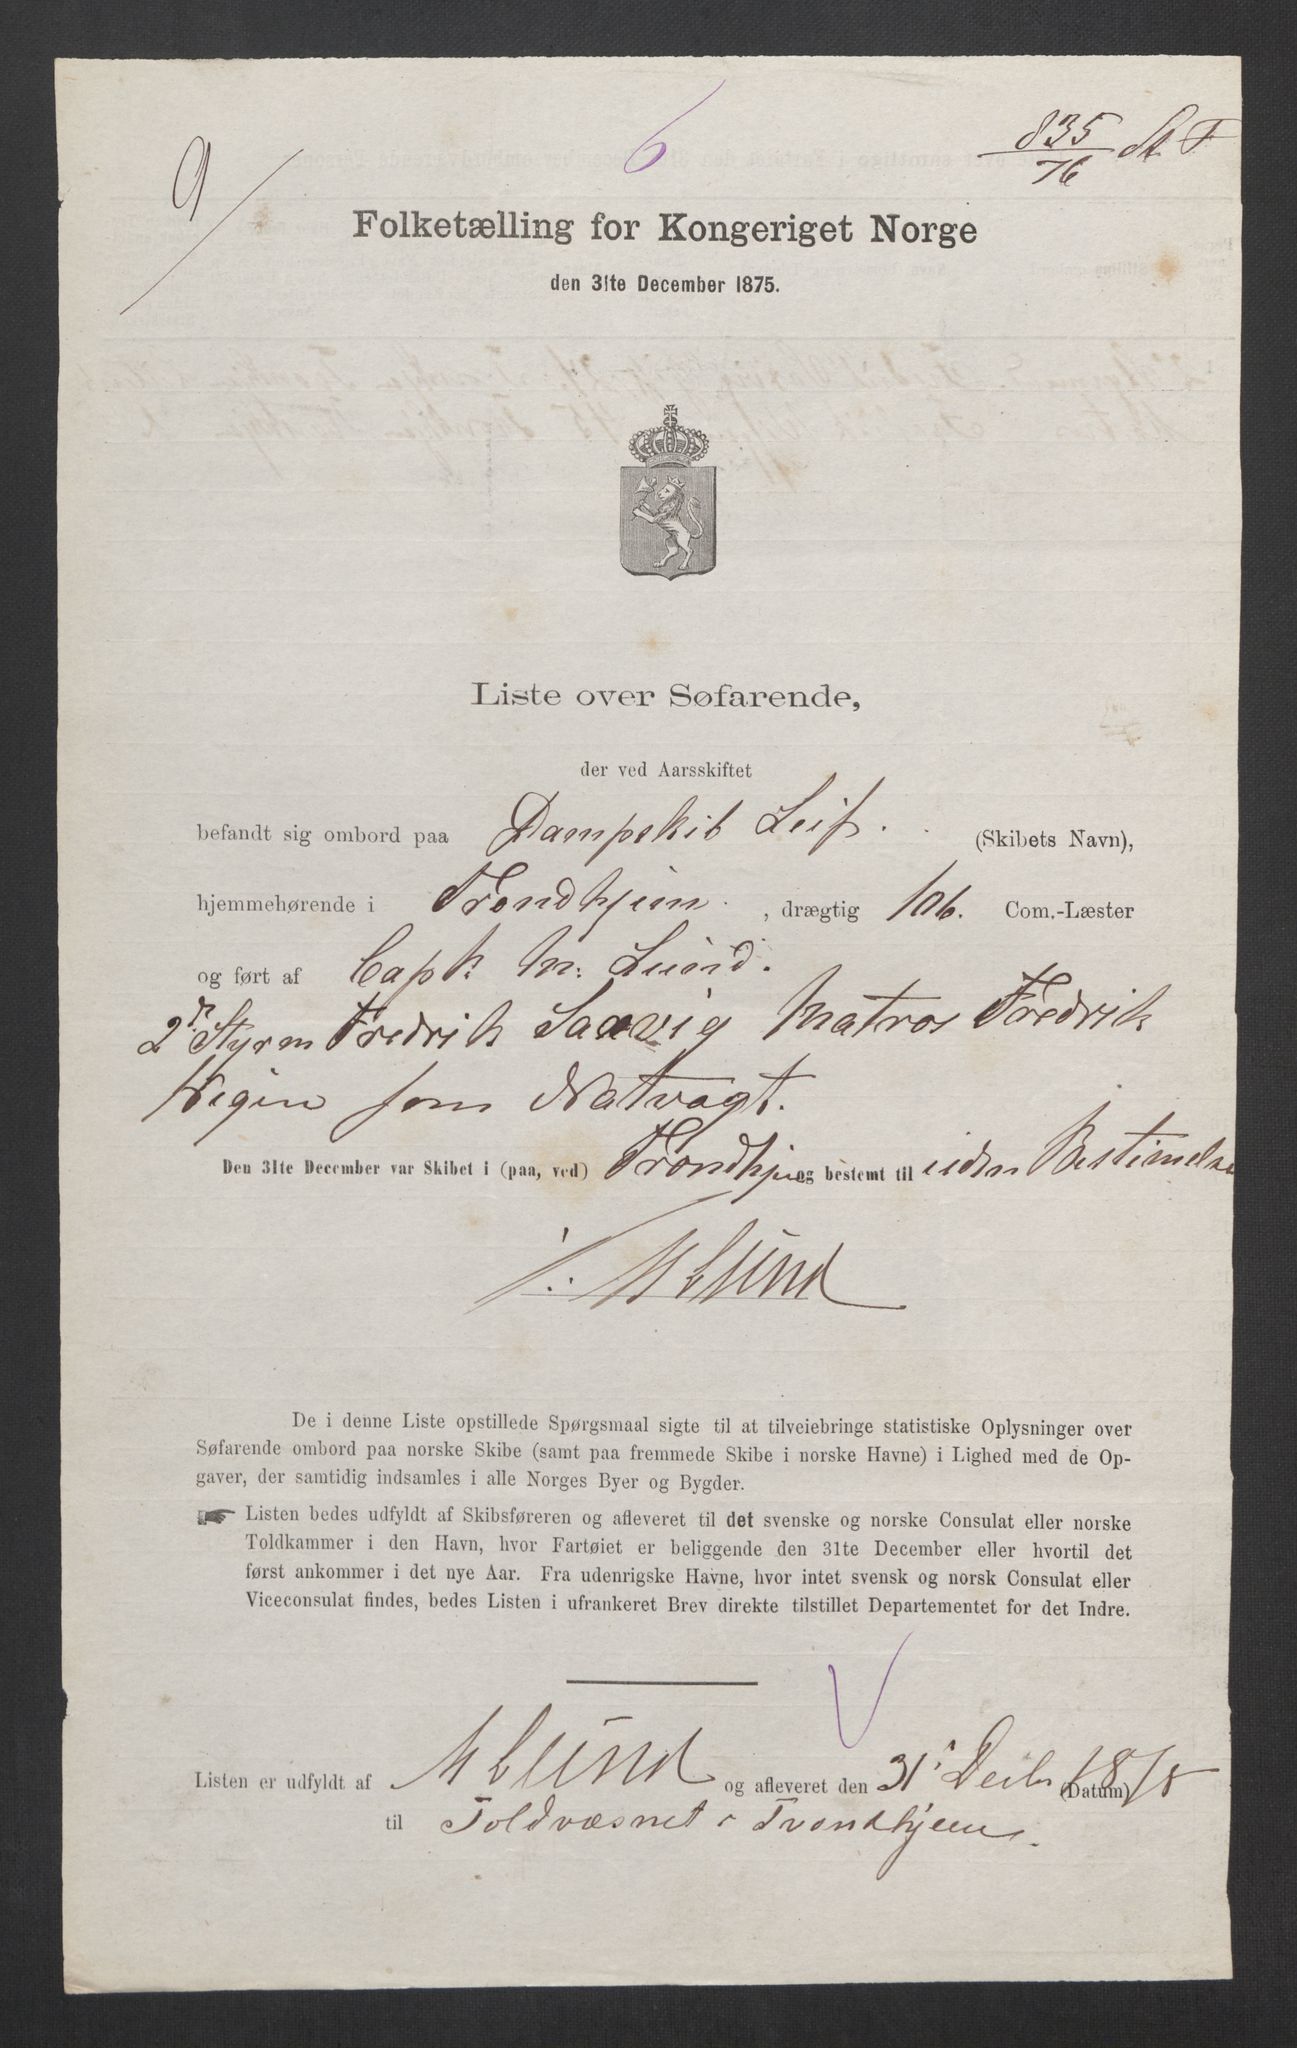 9
6
835
76
Folketælling for Kongeriget Norge
den 31te December 1875.
Liste over Søfarende,
der ved Aarsskiftet
befandt sig ombord paa Dampskib Leif. (Skibets Navn),
hjemmehørende i Trondhjem. , drægtig 106. Com.-Læster
og ført af Capt. M. Lund.
2den Styrm Fredrik Saxvig Matros Fredrik
Wigen som Natvagt.
Den 31te December var Skibet i (paa, ved) Trondhjem og bestemt til uden Bestemelse
M Lund
De i denne Liste opstillede Spørgsmaal sigte til at tilveiebringe statistiske Oplysninger over
Søfarende ombord paa norske Skibe (samt paa fremmede Skibe i norske Havne) i Lighed med de Op-
gaver, der samtidig indsamles i alle Norges Byer og Bygder.
Listen bedes udfyldt af Skibsføreren og afleveret til det svenske og norske Consulat eller norske
Toldkammer i den Havn, hvor Fartøiet er beliggende den 31te December eller hvortil det
først ankommer i det nye Aar. Fra udenrigske Havne, hvor intet svensk og norsk Consulat eller
Viceconsulat findes, bedes Listen i ufrankeret Brev direkte tilstillet Departementet for det Indre.
Listen er udfyldt af M Lund og afleveret den 31 Decbr 1875 (Datum)
til Toldvæsnet i Trondhjem.